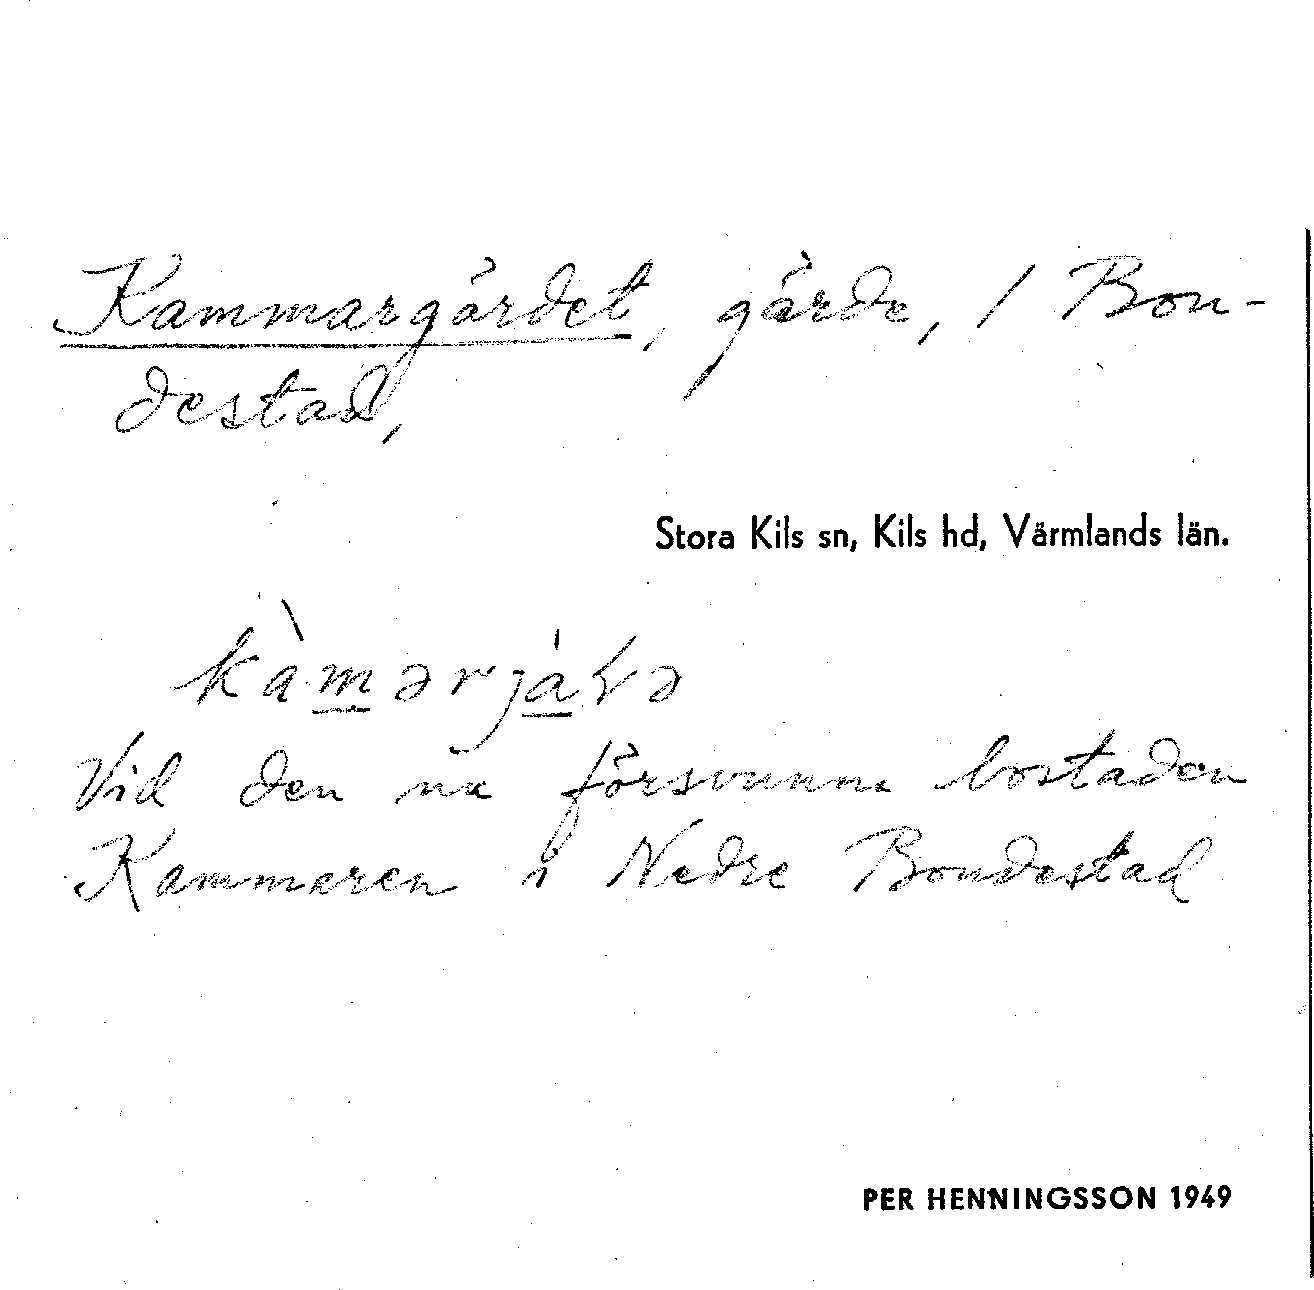 Kammargärdet, gärde, / Bon-
destad,
Stora Kils sn, Kils hd, Värmlands län.
Vid den nu försvunna bostaden
Kammaren i Nedre Bondestad
PER HENNINGSSON 1949